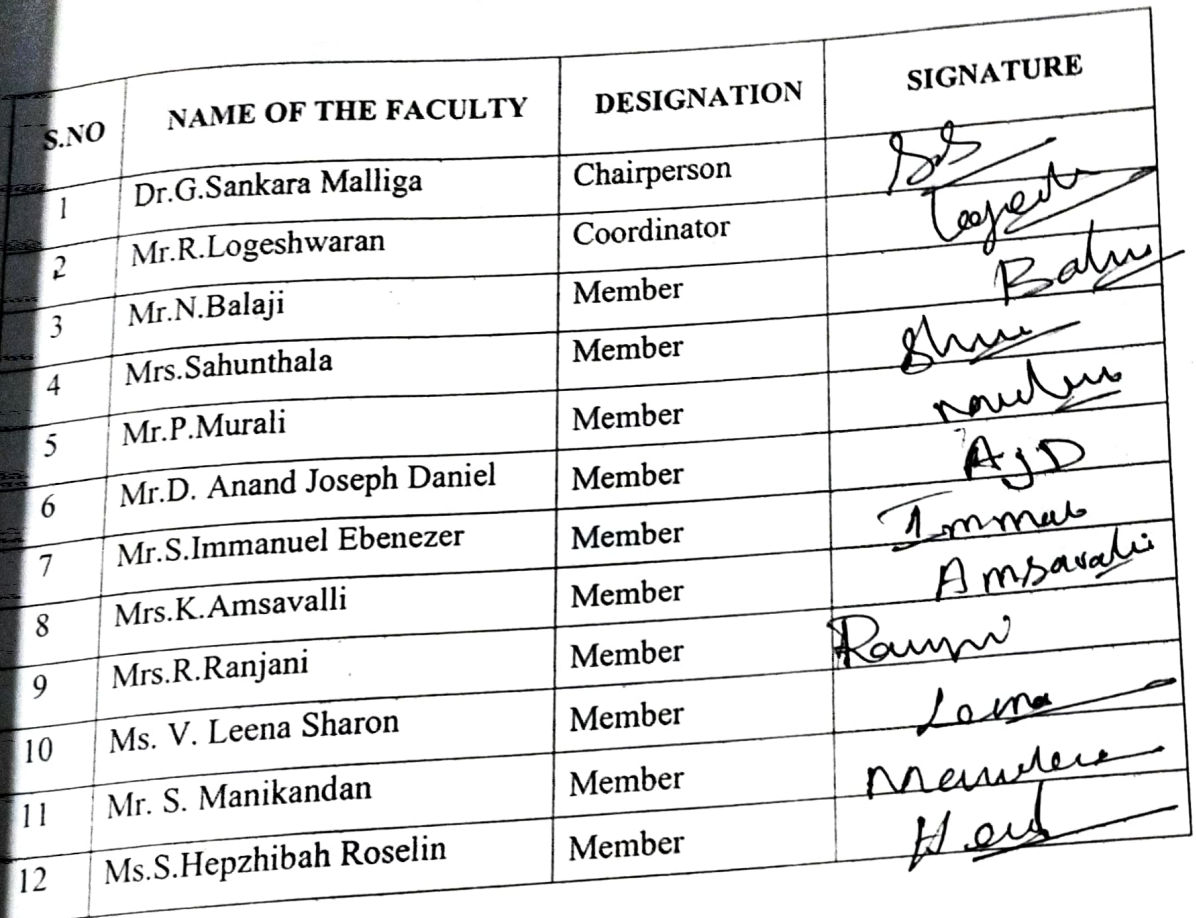 S.NO NAME OF THE FACULTY DESIGNATION SIGNATURE
1 Dr.G.Sankara Malliga Chairperson
2 Mr.R.Logeshwaran Coordinator
3 Mr.N.Balaji Member
4 Mrs.Sahunthala Member
5 Mr.P.Murali Member
6 Mr.D. Anand Joseph Daniel Member AJD
7 Mr.S.Immanuel Ebenezer Member
8 Mrs.K.Amsavalli Member Amsavalli
9 Mrs.R.Ranjani Member
10 Ms. V. Leena Sharon Member
11 Mr. S. Manikandan Member
12 Ms.S.Hepzhibah Roselin Member